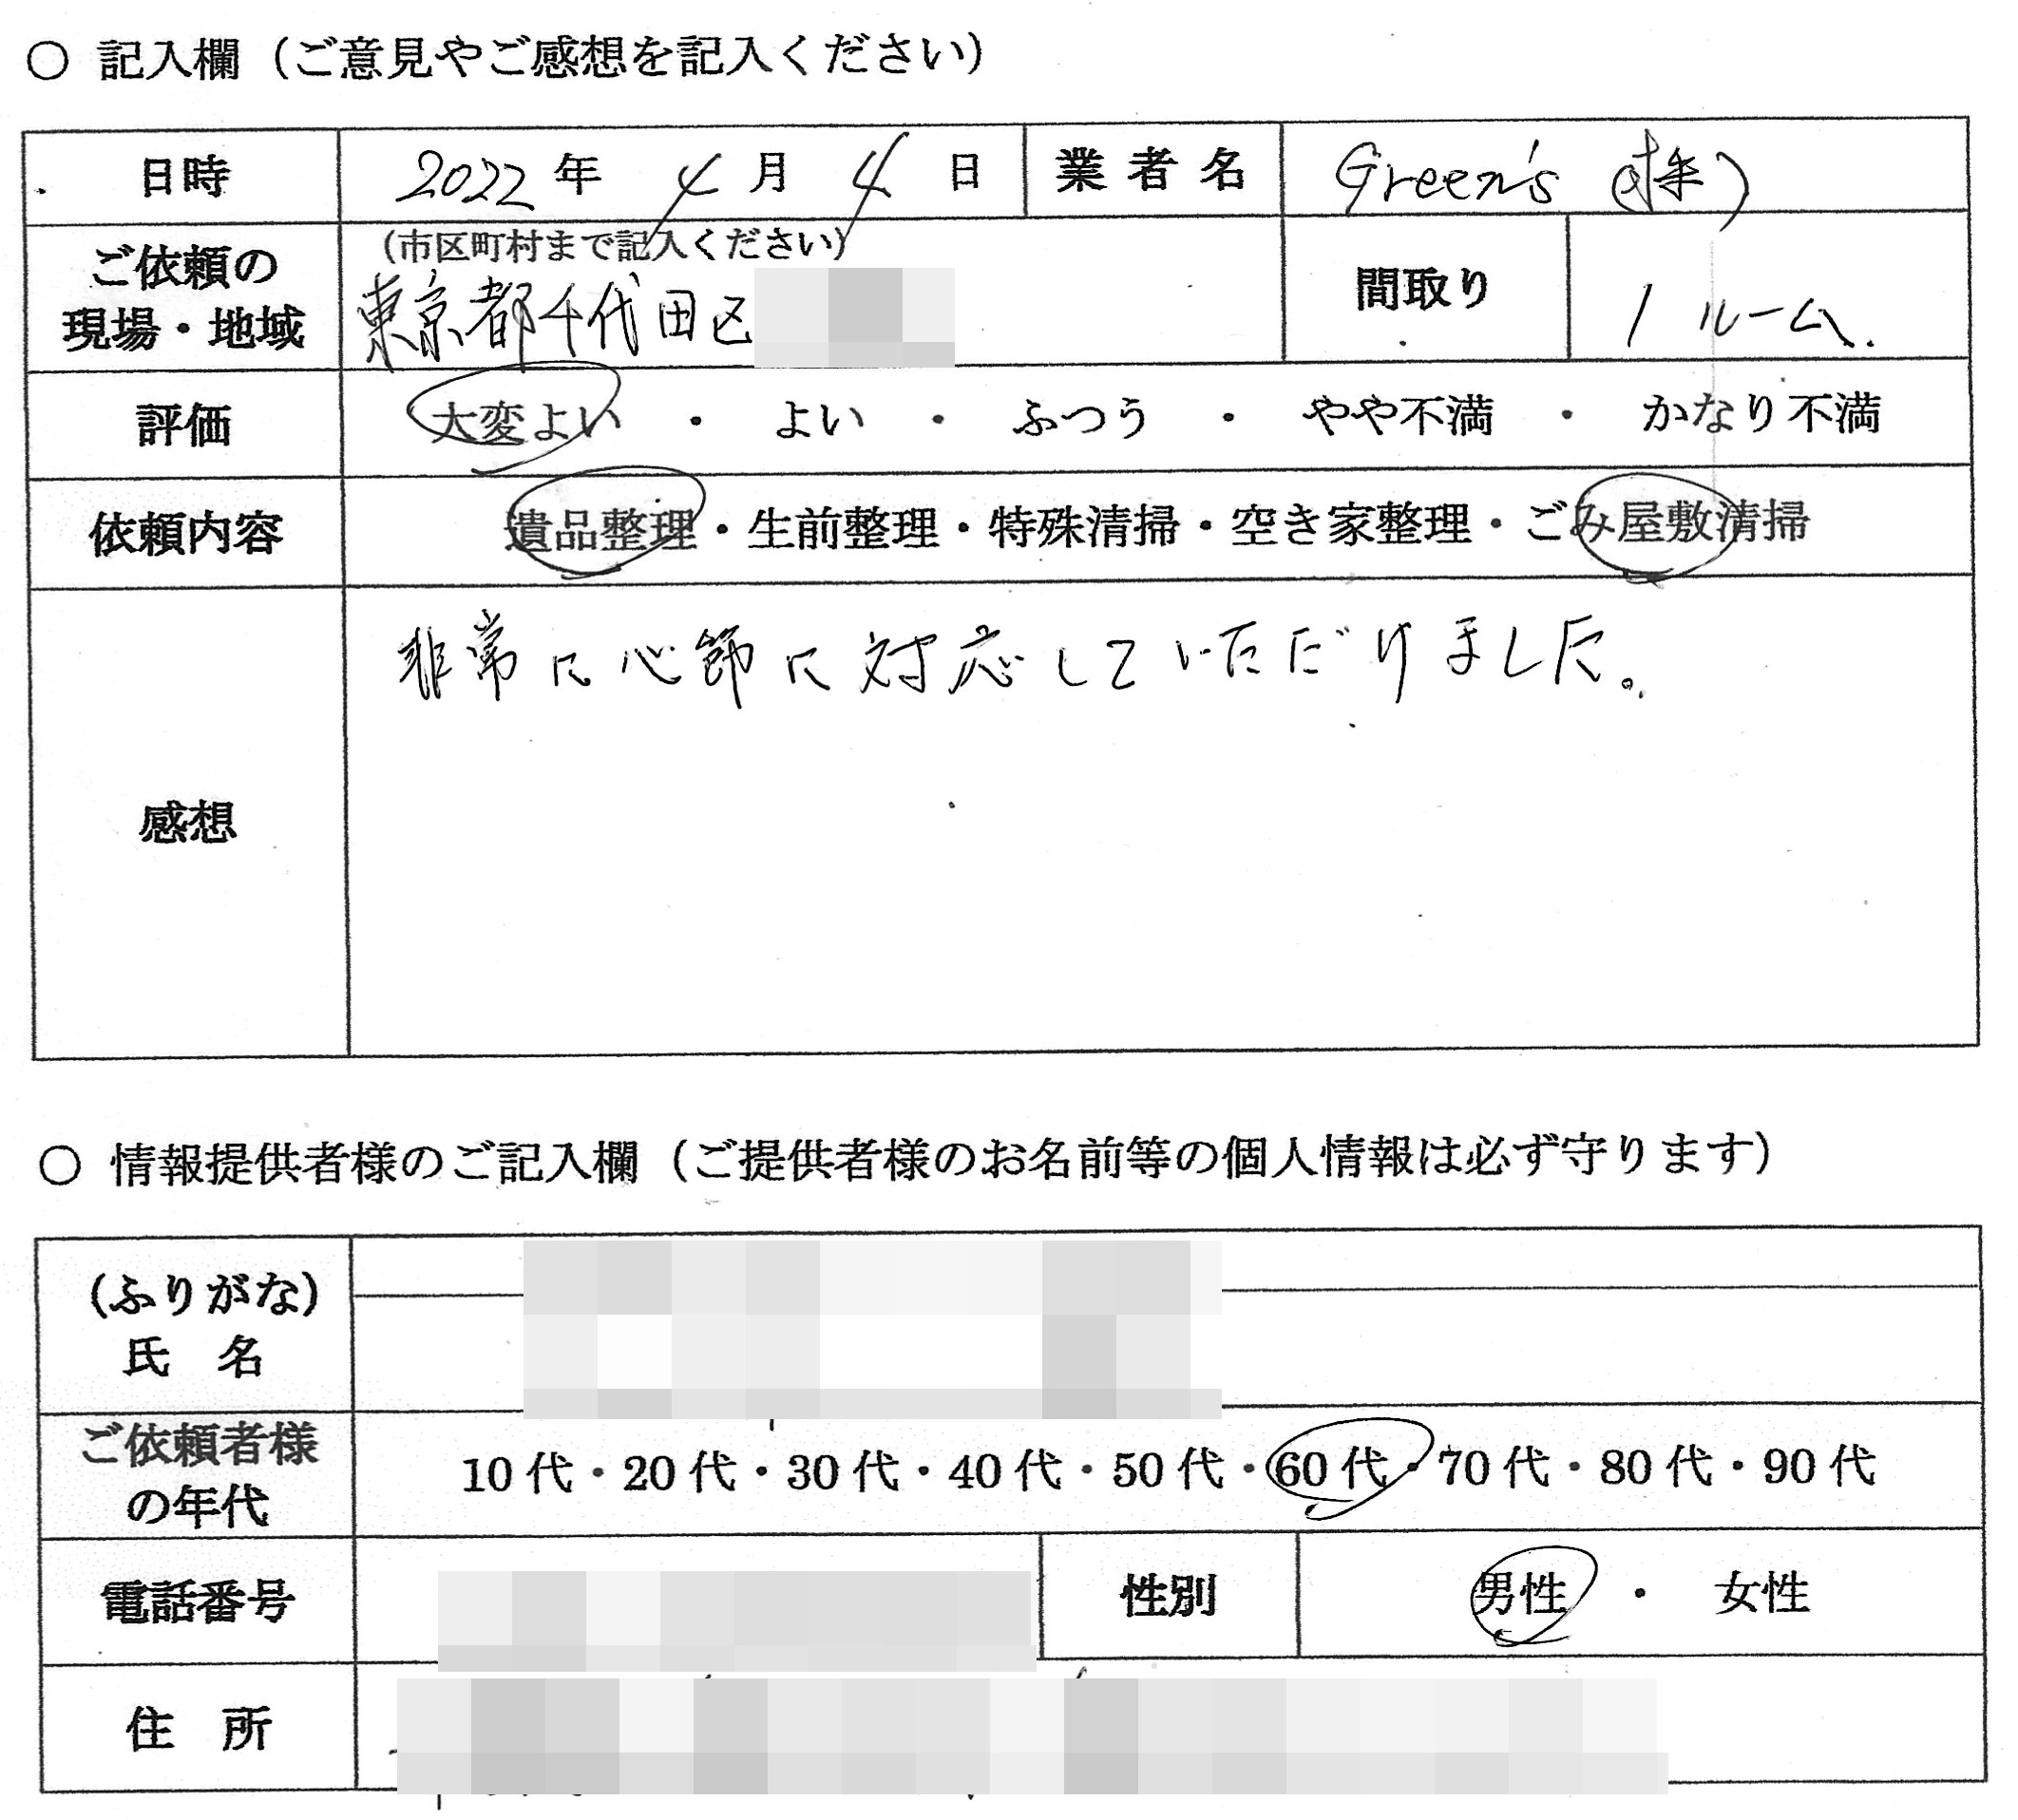 ○ 記入欄（ご意見やご感想を記入ください）
日時 2022 年 4 月 4 日 業者名 Green's (株)
ご依頼の現場・地域 (市区町村まで記入ください)
東京都千代田区 間取り 1 ルーム.
評価 大変よい ・ よい ・ ふつう ・ やや不満 ・ かなり不満
依頼内容 遺品整理・生前整理・特殊清掃・空き家整理・ごみ屋敷清掃
感想 非常に心節に対応していただけました。
○ 情報提供者様のご記入欄（ご提供者様のお名前等の個人情報は必ず守ります）
(ふりがな)
氏 名
ご依頼者様の年代 10代・20代・30代・40代・50代・60代・70代・80代・90代
電話番号 性別 男性 ・ 女性
住 所